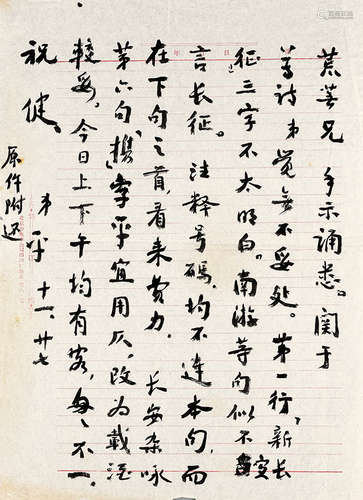 荒芜兄 手示诵悉。关于
万诗弟觉无不妥处。第一行“新长
征”三字不太明白。南游等句似不宜
言长征。注释号码，均不连本句，而
在下句之首，看来费力。长安杂咏
第六句“携”字平宜用仄，改为载酒
较妥。今日上下午均有客，匆匆不一。
祝健。
弟 平 十一、廿七
原件附还